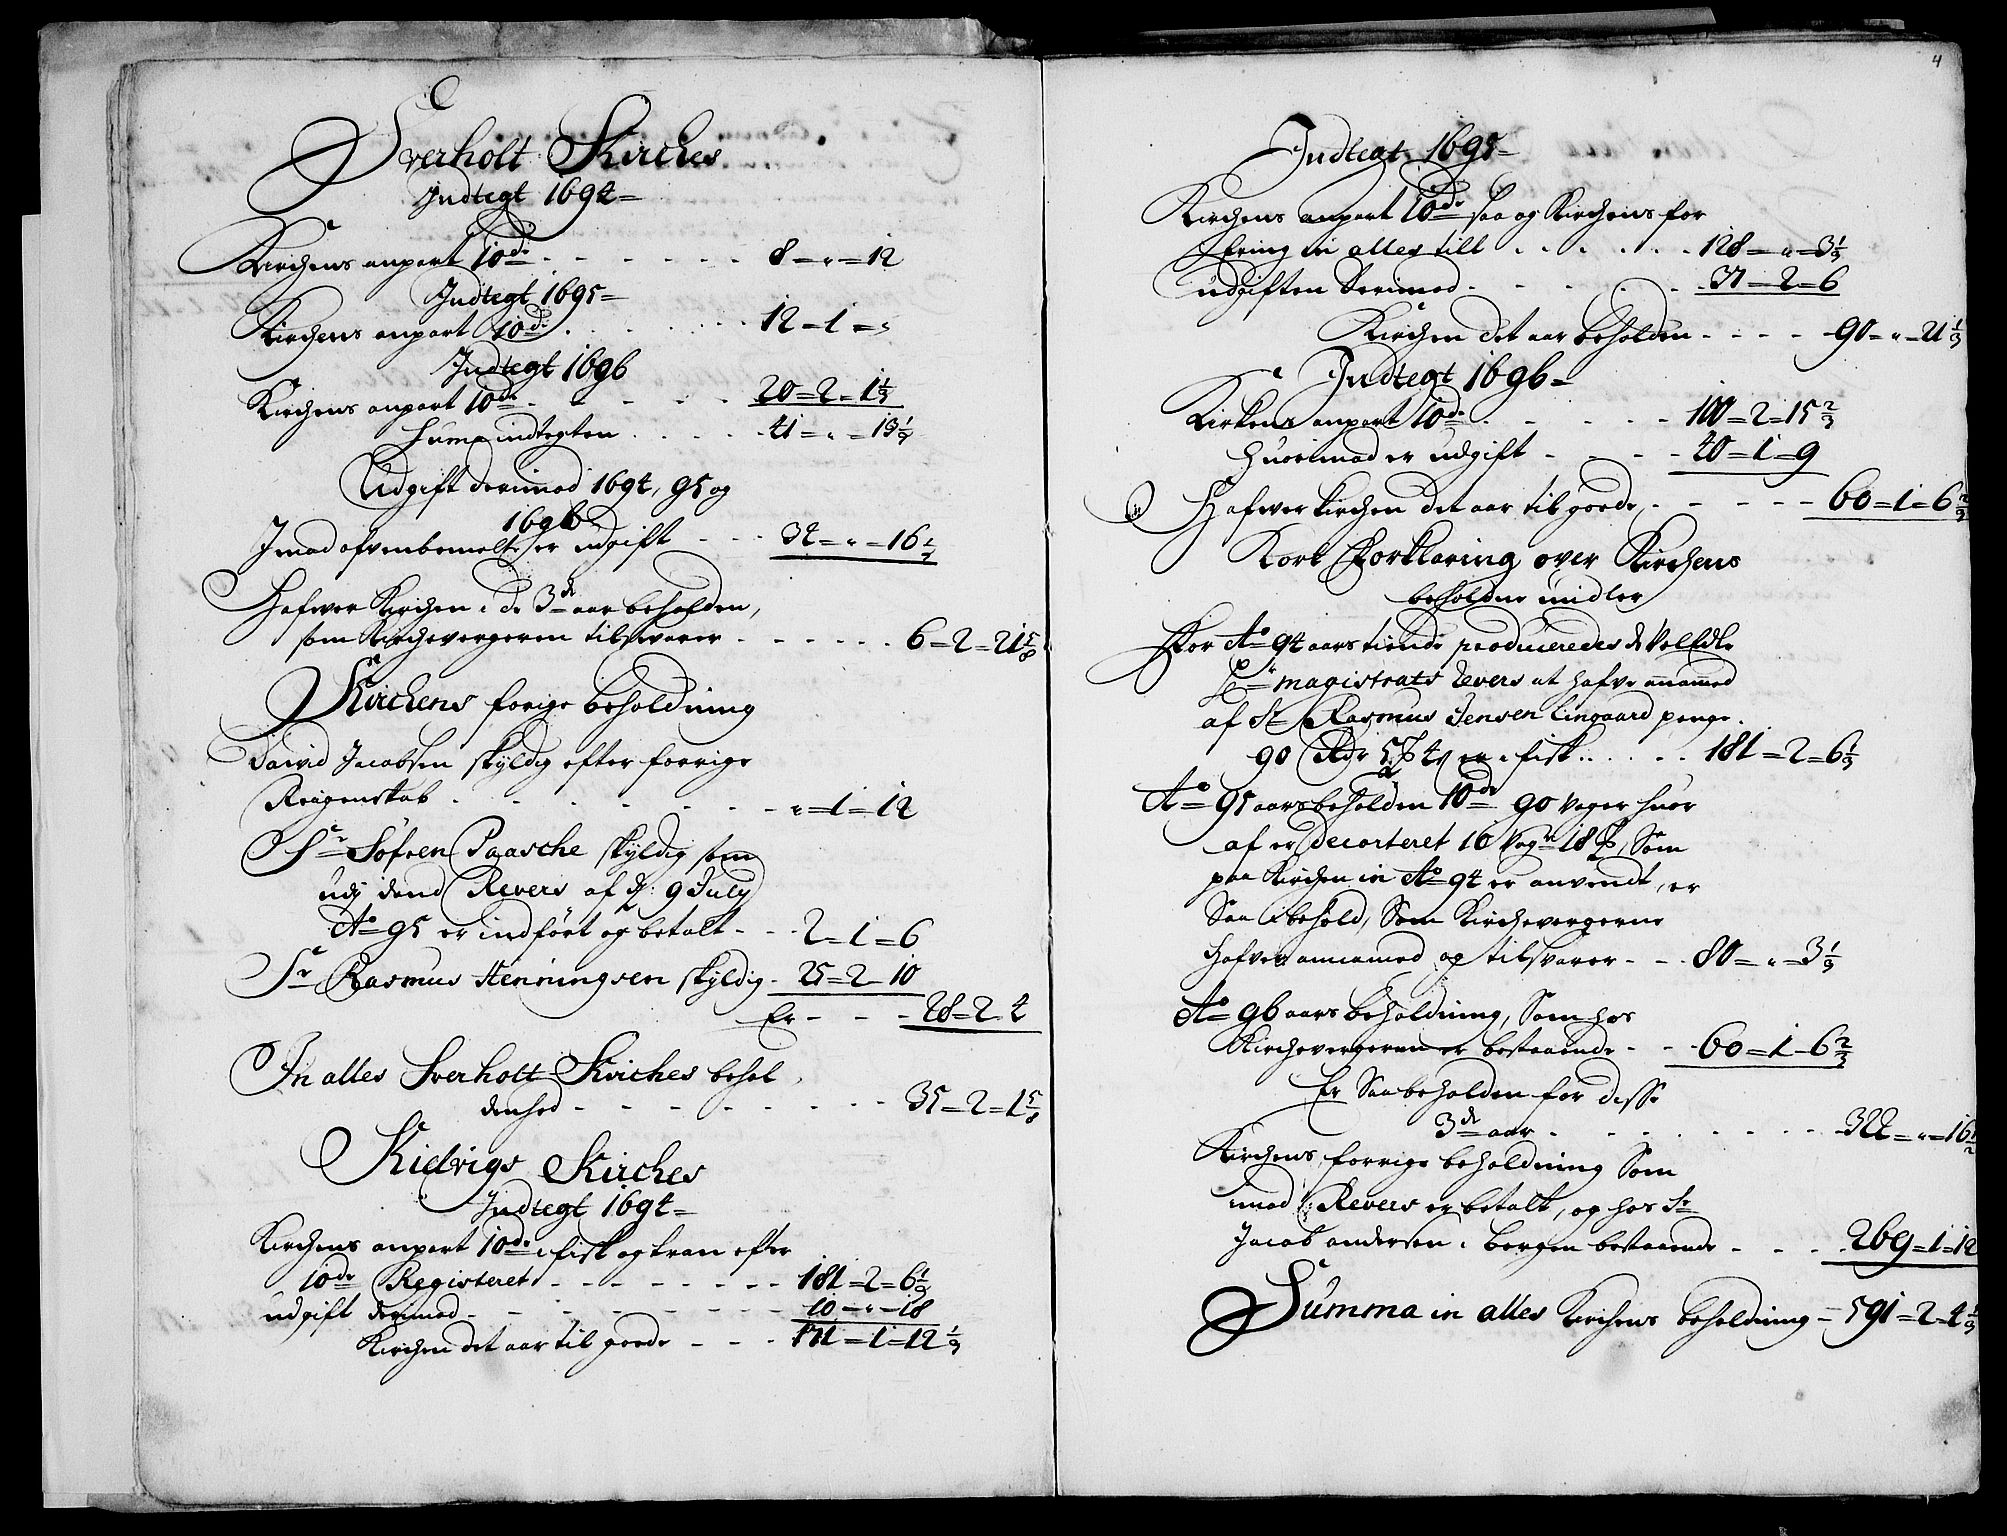 Sverholt Kirches
Indtegt 1694=
Kirchens anpart 10de - - - - - - 8 = " = 12
Indtegt 1695=
Kirchens anpart 10de - - - - - - 12 = 1 = "
Indtegt 1696
Kirchens anpart 10de - - - - - 20 = 2 = 1 1/3
Suma indtegten . . . . . 41 = " = 13 1/3
Udgift derimod 1694, 95 og
1696
Imod ofvenbemelte er udgift - - - 34 = " = 16 1/2
Hafwer Kirchen i de 3de aar beholden,
som Kirchevergeren tilswarer - - - - - - 6 = 2 = 21 5/6
Kirchens forige beholdning
David Jacobsen skyldig efter forrige
Reigenskab - - - - - - - " = 1 = 12
Sr Söfren Paasche skyldig som
udj dend Revers af d: 9 July
Ao 95 er indfört og betalt - - 2 = 1 = 6
Sr Rasmus Henningsen skyldig - 25 = 2 = 10
Er - - - 28 = 2 = 4
In alles Sverholt Kirches behol
denhed - - - - - - - - 35 = 2 = 1 5/6
Kielvigs Kirches
Indtegt 1694=
Kirchens anpart 10de i fisk og tran efter
10de Registeret - - - - - - 181 = 2 = 6 1/3
udgift derimod - - - - - - - - 10 = " = 18
Kirchen det aar til goede - - - 171 = 1 = 12 1/3
4
Indtegt 1695=
Kirchens anpart 10de saa og Kirchens for
Ering in alles till . . . . . . 128 = " = 3 1/3
udgiften derimod - - - - - - 37 = 2 = 6
Kirchen det aar beholden - - - - 90 = " = 21 1/3
Indtegt 1696=
Kirkens anpart 10de - - - - - 100 = 2 = 15 2/3
Huorimod er udgift - - - - 40 = 1 = 9
Hafwer kirchen det aar til goede - - - - - 60 = 1 = 6 2/3
Kort Forklaring over Kirchens
beholdne midler
For Ao 94 aars tiende produceredes d Vel Edle
Hr magistrats Revers at hafve annammed
af Sr Rasmus Jensen Lingaard penge
90 Rdr 5 ß 4 er i fisk . . . . . 181 = 2 = 6 1/3
Ao 95 aars beholden 10de 90 Voger huor
af er decorteret 10 Vogr 18 ℔, Som
paa Kirchen in Ao 94 er anvendt, er
Saa i behold, Som Kirchevergerne
Hafver annamed og tilsvarer - - 80 = " = 3 1/3
Ao 96 aars beholdning, Som hos
Kirchevergeren er bestaaende - - 60 = 1 = 6 2/3
Er Saa beholden for disse
3de aar - - - - - - - - 322 = " = 16 1/2
Kirchens forrige beholdning Som
imod Revers er betalt, og hos Sr
Jacob andersen i bergen bestaaende - - - - 269 = 1 = 12
Summa in alles Kirchens beholdning = 591 = 2 = 4 1/3